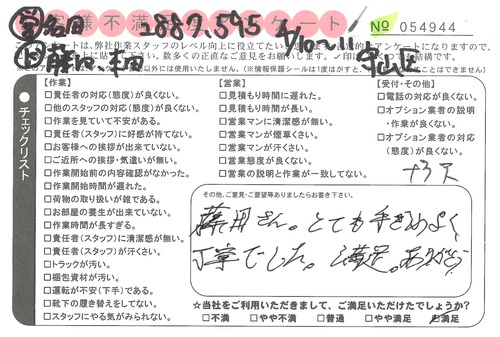 お客様不満足アンケート
No 054944
2887,595
4/10〜11
守山区
【作業】
□責任者の対応(態度)が良くない。
□他のスタッフの対応(態度)が良くない。
□作業を見ていて不安がある。
□責任者(スタッフ)に好感が持てない。
□お客様への挨拶が出来ていない。
□ご近所への挨拶・気遣いが無い。
□作業開始前の内容確認がなかった。
□作業開始時間が遅れた。
□荷物の取り扱いが雑である。
□お部屋の養生が出来ていない。
□作業時間が長すぎる。
□責任者(スタッフ)に清潔感が無い。
□責任者(スタッフ)が汗くさい。
□トラックが汚い。
□梱包資材が汚い。
□運転が不安(下手)である。
□靴下の履き替えをしてない。
□スタッフにやる気がみられない。
【営業】
□見積もり時間に遅れた。
□見積もり時間が長い。
□営業マンに清潔感が無い。
□営業マンが煙草くさい。
□営業マンが汗くさい。
□営業態度が良くない。
□営業の説明と作業が一致してない。
【受付・その他】
□電話の対応が良くない。
□オプション業者の説明
・作業が良くない。
□オプション業者の対応
(態度)が良くない。
チェックリスト
その他、ご意見・ご要望等ありましたらお書き下さい。
さん。とても手ぎわよく
丁寧でした。満足。
☆当社をご利用いただきまして、ご満足いただけたでしょうか?
□不満 □やや不満 □普通 □やや満足 ☑満足